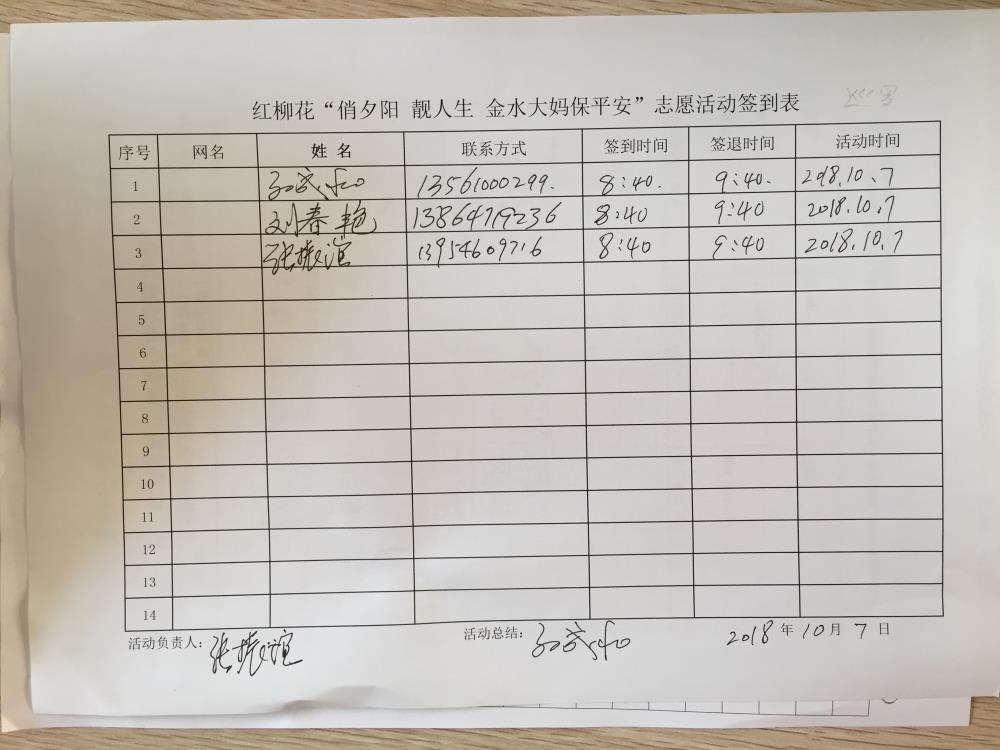 红柳花“俏夕阳 靓人生 金水大妈保平安”志愿活动签到表
序号 网名 姓 名 联系方式 签到时间 签退时间 活动时间
1 13561000299. 8:40. 9:40. 2018.10.7
2 刘春艳 13864719236 8:40 9:40 2018.10.7
3 张振谊 13954609716 8:40 9:40 2018.10.7
4
5
6
7
8
9
10
11
12
13
14
活动负责人: 张振谊 活动总结: 2018 年 10 月 7 日